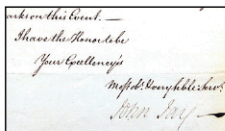 arks on this Event. —
I have the Honor to be
Your Excellency's
Most Obt. Hum'ble Servt.
John Jay